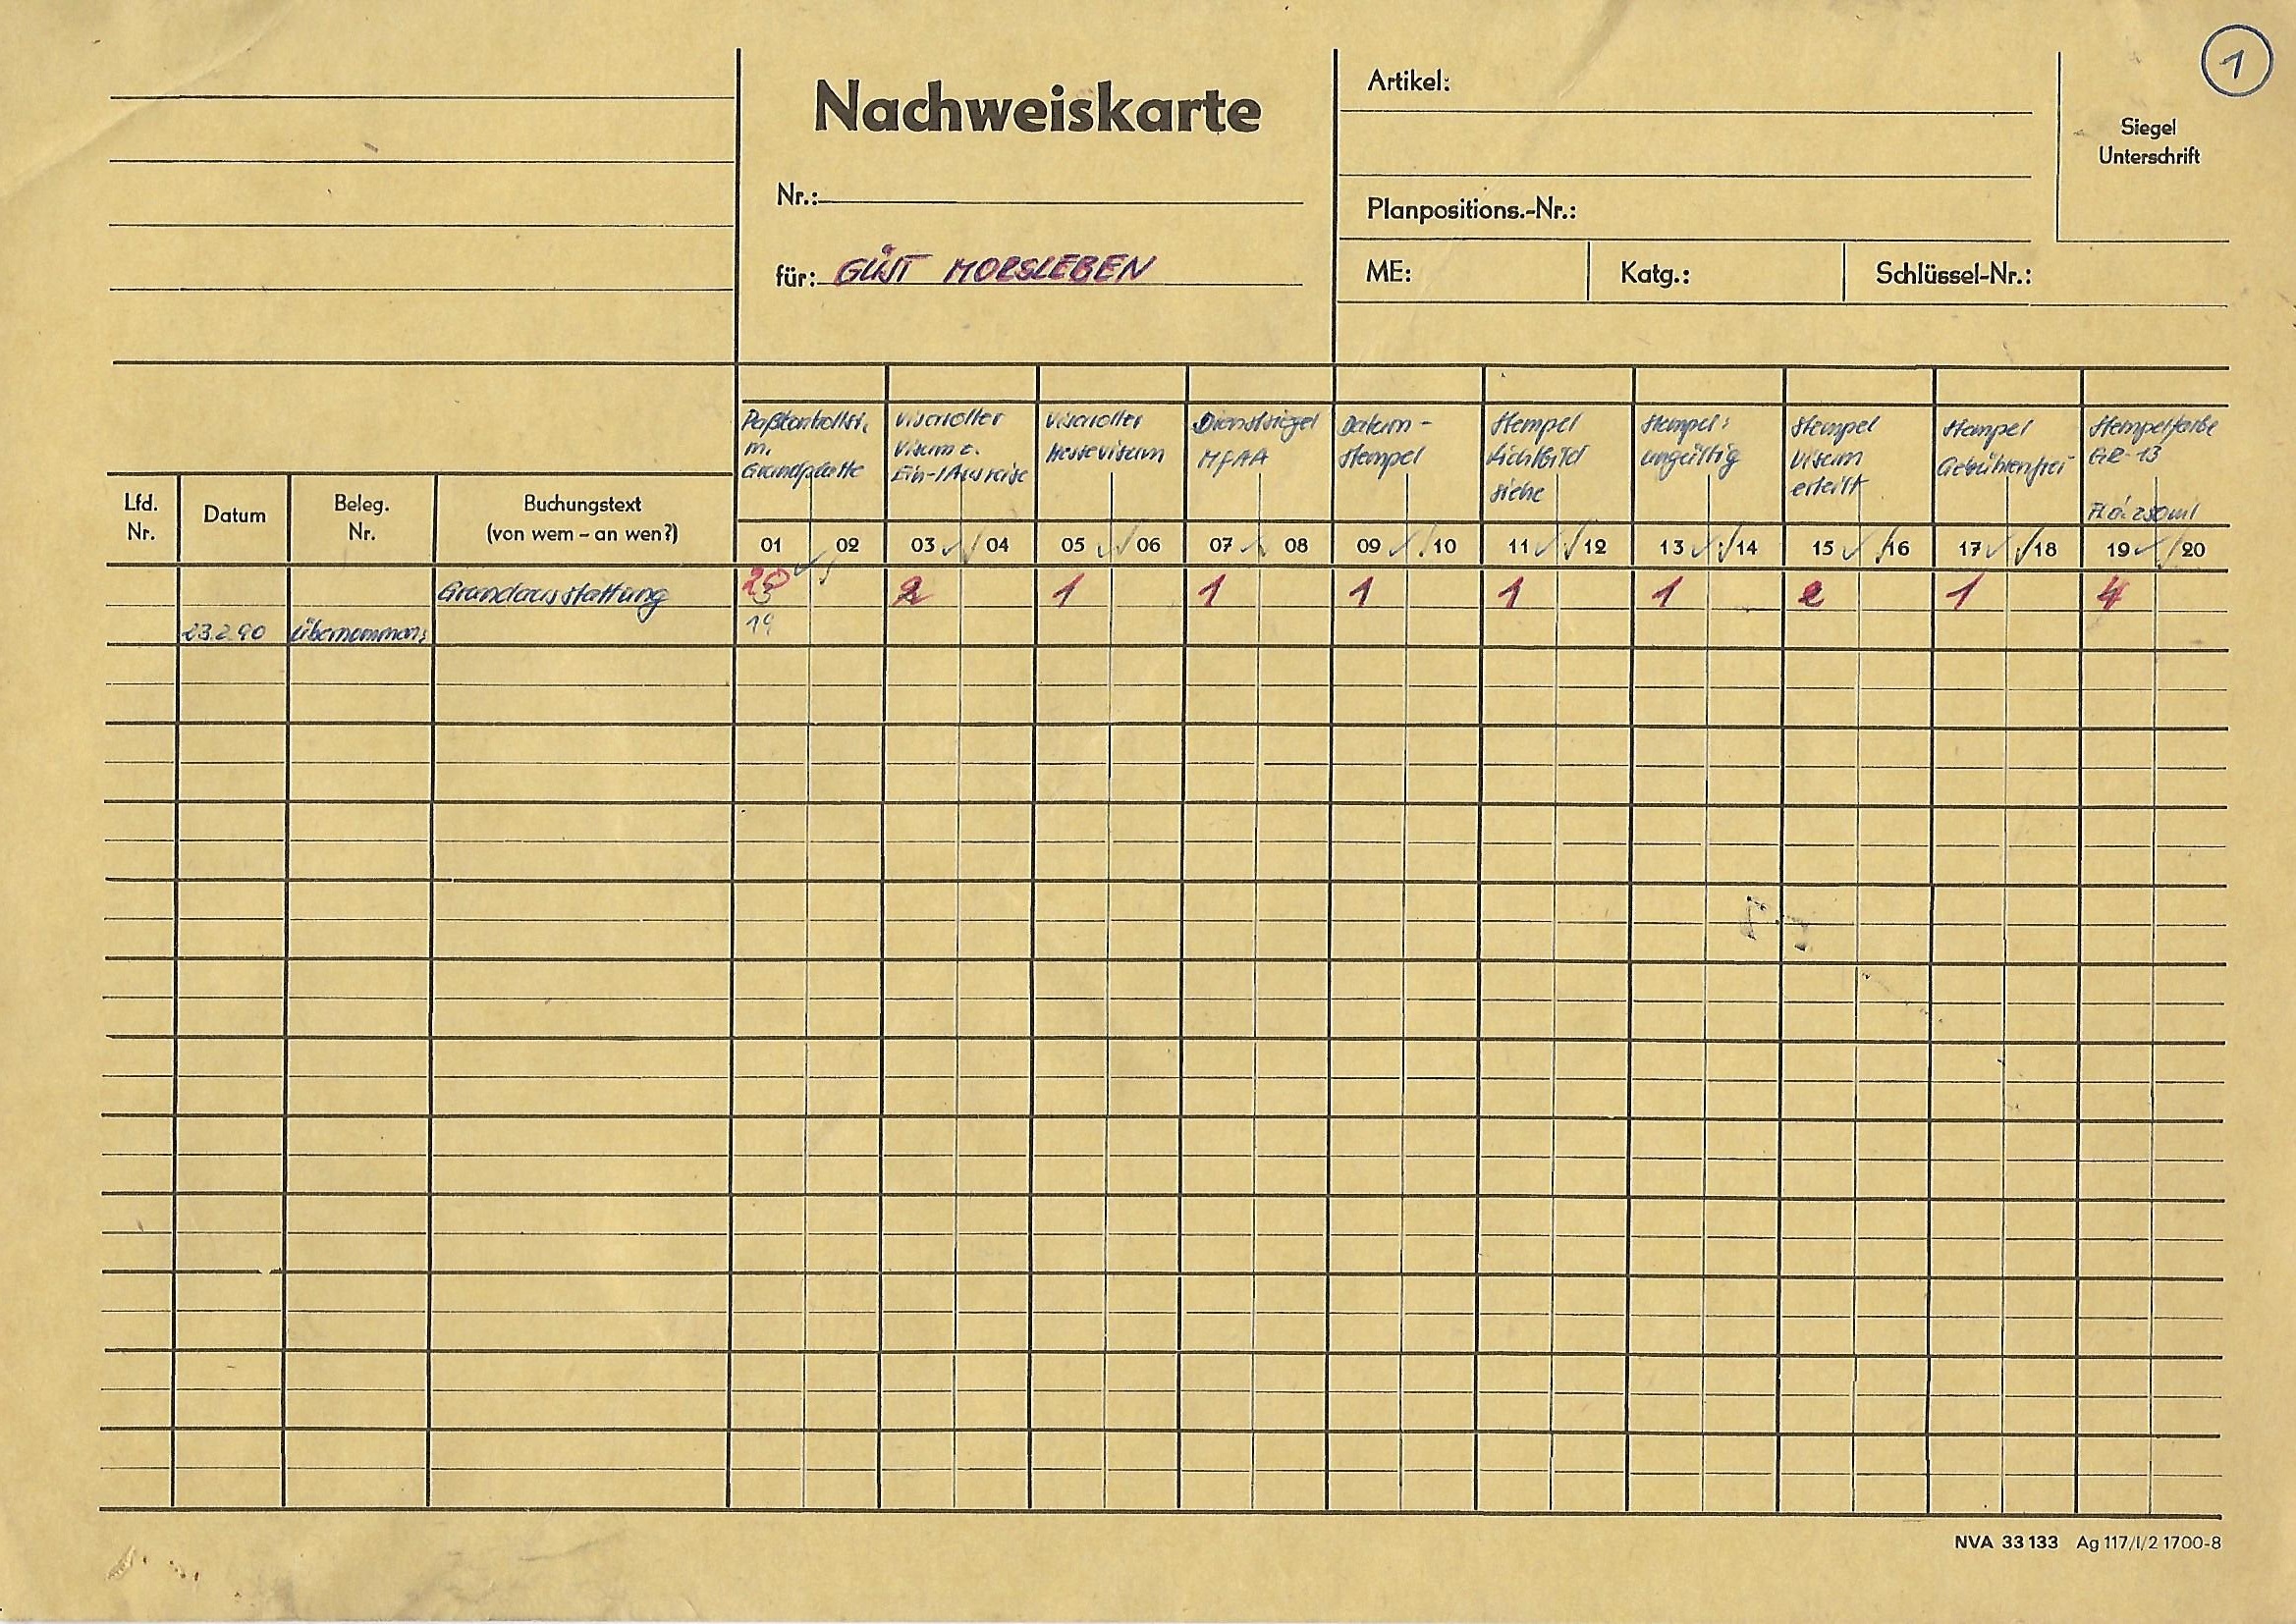 1
Nachweiskarte
Nr.:
für: GÜST MORSLEBEN
Artikel:
Planpositions.-Nr.:
ME: Katg.: Schlüssel-Nr.:
Siegel
Unterschrift
Paßkontrollst.
m.
Grundplatte
Visaroller
Visum z.
Ein-/Ausreise
Visaroller
Messevisum
Dienstsiegel
MfAA
Datum-
stempel
Stempel
Lichtbild
siehe
Stempel:
ungültig
Stempel
Visum
erteilt
Stempel
Gebührenfrei
Stempelfarbe
GR-13
Fl. á. 250ml
Lfd.
Nr.
Datum
Beleg.
Nr.
Buchungstext
(von wem – an wen?)
01 02 03 04 05 06 07 08 09 10 11 12 13 14 15 16 17 18 19 20
Grundausstattung 20 2 1 1 1 1 1 2 1 4
23.2.90 übernommen: 19
NVA 33 133 Ag 117/I/2 1700-8